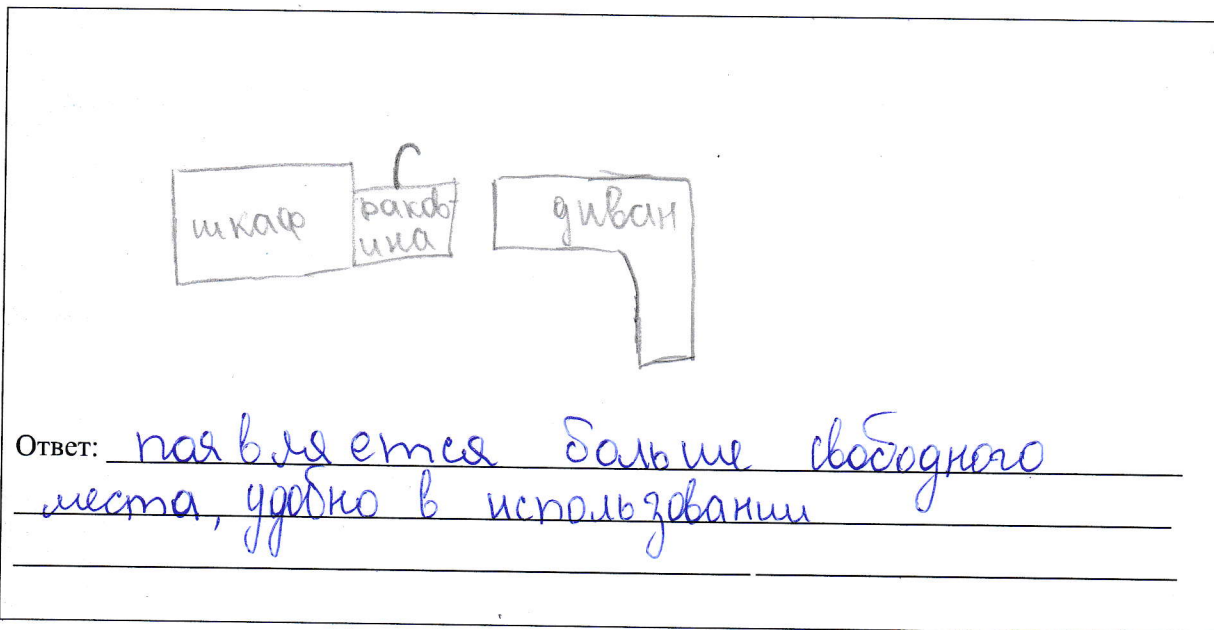 шкаф
раков-
ина
диван
Ответ: появляется больше свободного
места, удобно в использовании